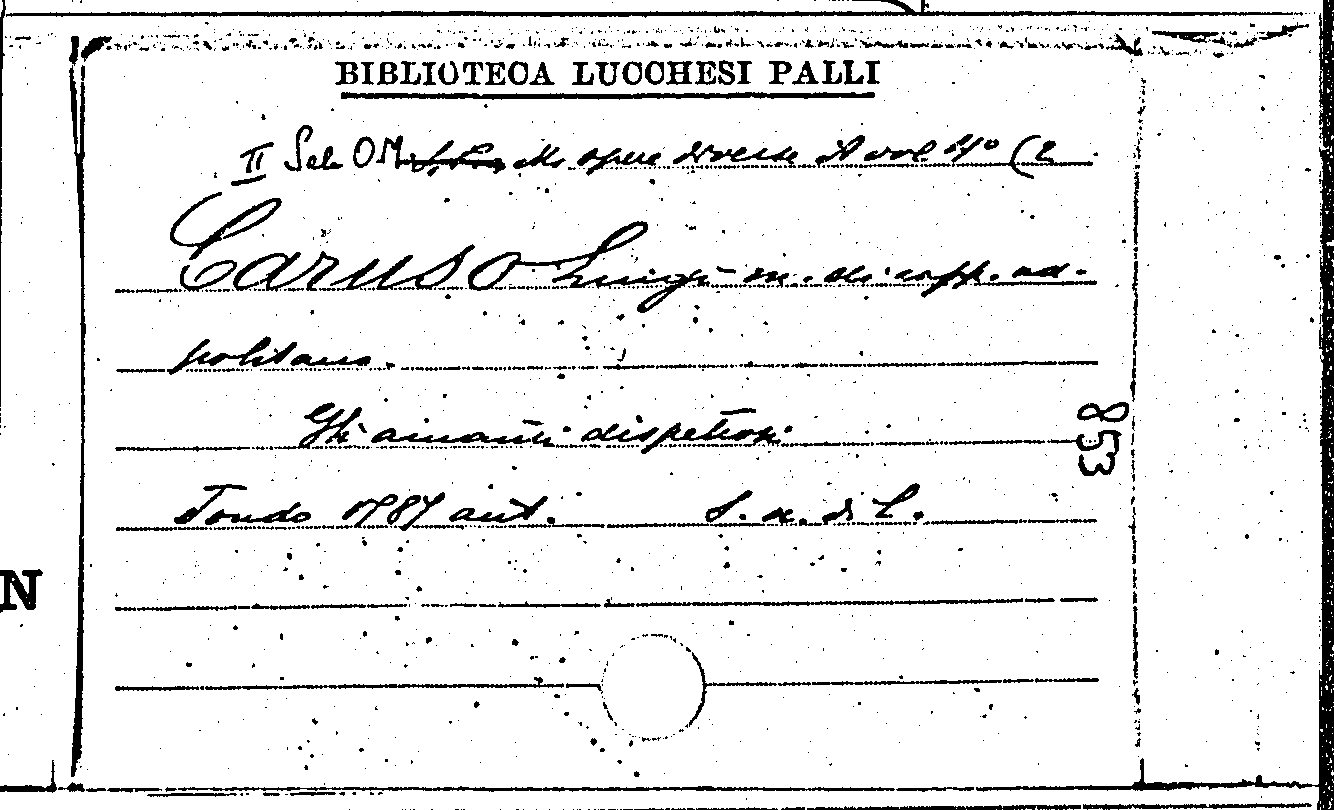 BIBLIOTECA LUCCHESI PALLI
II Sala O M. Ms opere diverse A vol 4º (2
Caruso Luigi m. di capp. na-
politano.
Gli amanti dispettosi
Fondo 1787 aut. S. a. di C.
853
N